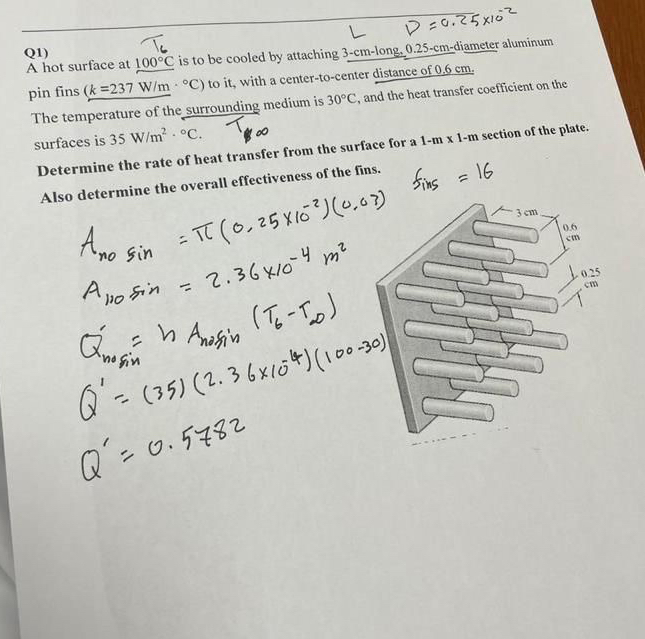 L D = 0.25x10^-2
Q1) T6
A hot surface at 100°C is to be cooled by attaching 3-cm-long, 0.25-cm-diameter aluminum
pin fins (k =237 W/m · °C) to it, with a center-to-center distance of 0.6 cm.
The temperature of the surrounding medium is 30°C, and the heat transfer coefficient on the
surfaces is 35 W/m² · °C. T∞
Determine the rate of heat transfer from the surface for a 1-m x 1-m section of the plate.
Also determine the overall effectiveness of the fins.
fins = 16
A no fin = π(0.25x10^-2)(0.03)
A no fin = 2.36x10^-4 m²
Q no fin = h A no fin (T6-T∞)
Q' = (35)(2.36x10^-4)(100-30)
Q' = 0.5782
3 cm
0.6
cm
0.25
cm